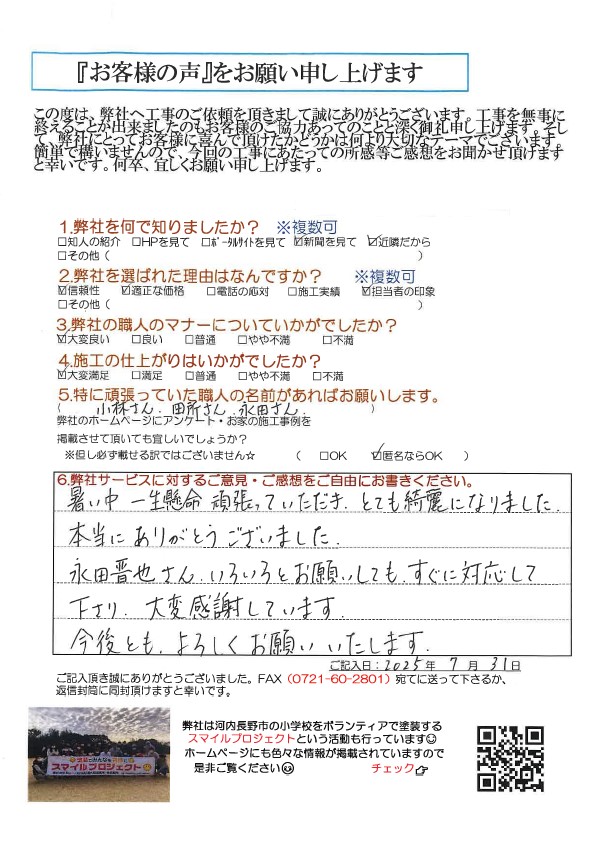 『お客様の声』をお願い申し上げます
この度は、弊社へ工事のご依頼を頂きまして誠にありがとうございます。工事を無事に
終えることが出来ましたのもお客様のご協力あってのことと深く御礼申し上げます。そし
て、弊社にとってお客様に喜んで頂けたかどうかは何より大切なテーマでございます。
簡単で構いませんので、今回の工事にあたっての所感等ご感想をお聞かせ頂けます
と幸いです。何卒、宜しくお願い申し上げます。
1.弊社を何で知りましたか？ ※複数可
□知人の紹介 □HPを見て □ポータルサイトを見て ☑新聞を見て ☑近隣だから
□その他（ ）
2.弊社を選ばれた理由はなんですか？ ※複数可
☑信頼性 ☑適正な価格 □電話の応対 □施工実績 ☑担当者の印象
□その他（ ）
3.弊社の職人のマナーについていかがでしたか？
☑大変良い □良い □普通 □やや不満 □不満
4.施工の仕上がりはいかがでしたか？
☑大変満足 □満足 □普通 □やや不満 □不満
5.特に頑張っていた職人の名前があればお願いします。
（ 小林さん、田所さん、永田さん ）
弊社のホームページにアンケート・お家の施工事例を
掲載させて頂いても宜しいでしょうか？
※但し必ず載せる訳ではございません☆ （ □OK ☑匿名ならOK ）
6.弊社サービスに対するご意見・ご感想をご自由にお書きください。
暑い中 一生懸命 頑張っていただき、とても綺麗になりました。
本当にありがとうございました。
永田晋也さん、いろいろとお願いしても、すぐに対応して
下さり、大変感謝しています。
今後とも、よろしくお願いいたします。
ご記入日：2025年 7月 31日
ご記入頂き誠にありがとうございました。FAX（0721-60-2801）宛てに送って下さるか、
返信封筒に同封頂けますと幸いです。
弊社は河内長野市の小学校をボランティアで塗装する
スマイルプロジェクトという活動も行っています☺
ホームページにも色々な情報が掲載されていますので
是非ご覧ください☺ チェック☞
スマイルプロジェクト